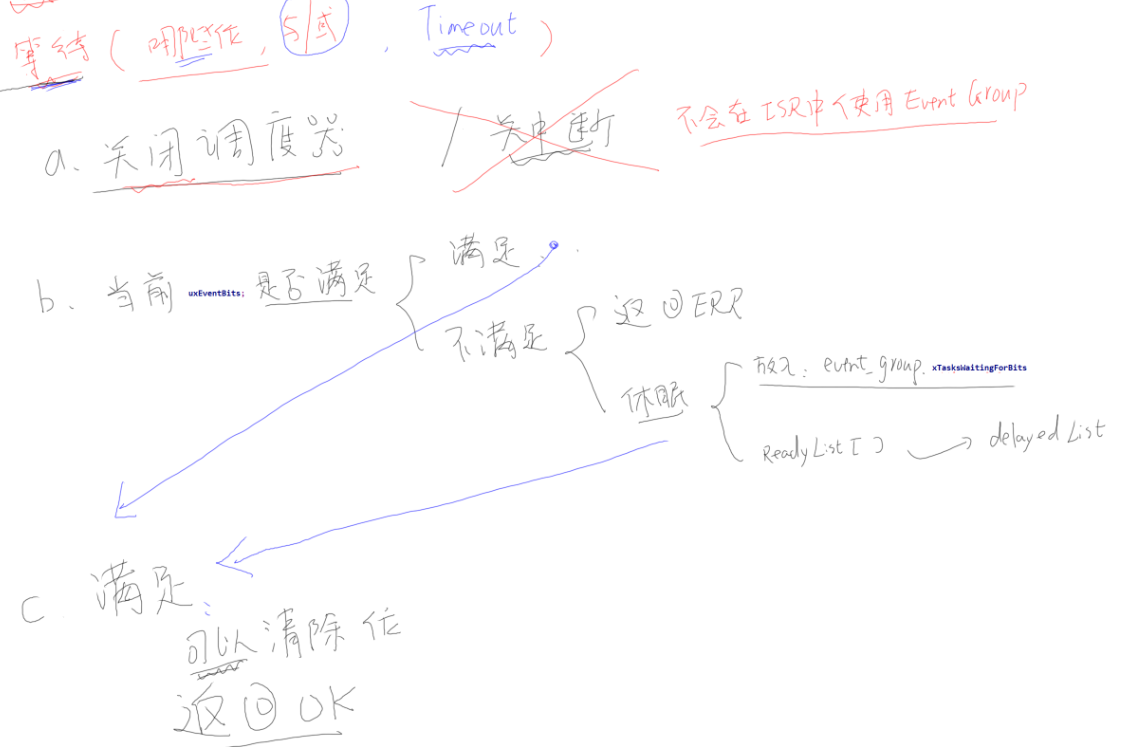 等待(哪些位, 与/或, Timeout)
a、关闭调度器 / 关中断 不会在ISR中使用Event Group
b、当前 uxEventBits; 是否满足
满足
不满足
返回ERR
休眠
放入: event_group. xTasksWaitingForBits
ReadyList[] → delayedList
c. 满足:
可以清除位
返回OK